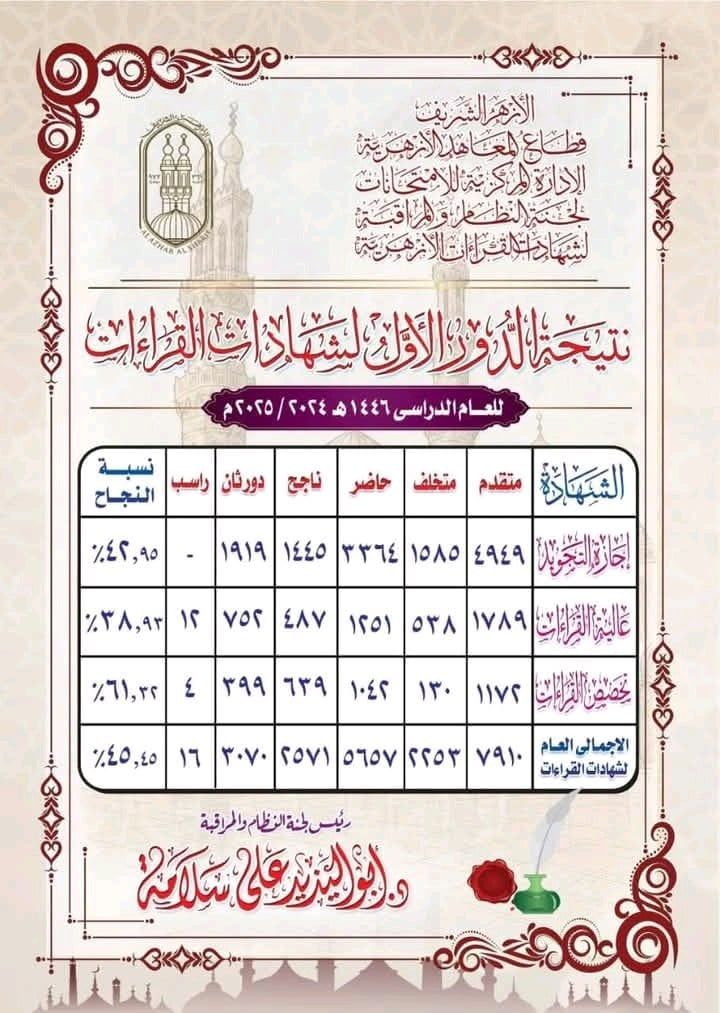 الأزهر الشريف
قطاع المعاهد الأزهرية
الإدارة المركزية للامتحانات
لجنة النظام والمراقبة
لشهادات القراءات الأزهرية
AL AZHAR AL SHARIF
نتيجة الدور الأول لشهادات القراءات
للعام الدراسى ١٤٤٦ هـ ٢٠٢٤ / ٢٠٢٥ م
الشهادة متقدم متخلف حاضر ناجح دور ثان راسب نسبة النجاح
إجازة التجويد ٤٩٤٩ ١٥٨٥ ٣٣٦٤ ١٤٤٥ ١٩١٩ - ٤٢,٩٥٪
عالية القراءات ١٧٨٩ ٥٣٨ ١٢٥١ ٤٨٧ ٧٥٢ ١٢ ٣٨,٩٣٪
تخصص القراءات ١١٧٢ ١٣٠ ١٠٤٢ ٦٣٩ ٣٩٩ ٤ ٦١,٣٢٪
الاجمالى العام لشهادات القراءات ٧٩١٠ ٢٢٥٣ ٥٦٥٧ ٢٥٧١ ٣٠٧٠ ١٦ ٤٥,٤٥٪
رئيس لجنة النظام والمراقبة
د. أبو اليزيد على سلامة